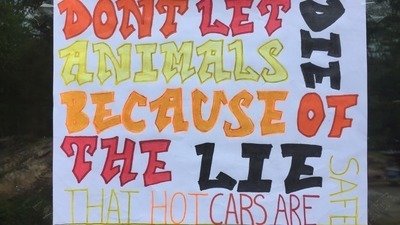 DONT LET
ANIMALS
DIE
BECAUSE OF
THE LIE
THAT HOT CARS ARE
SAFE